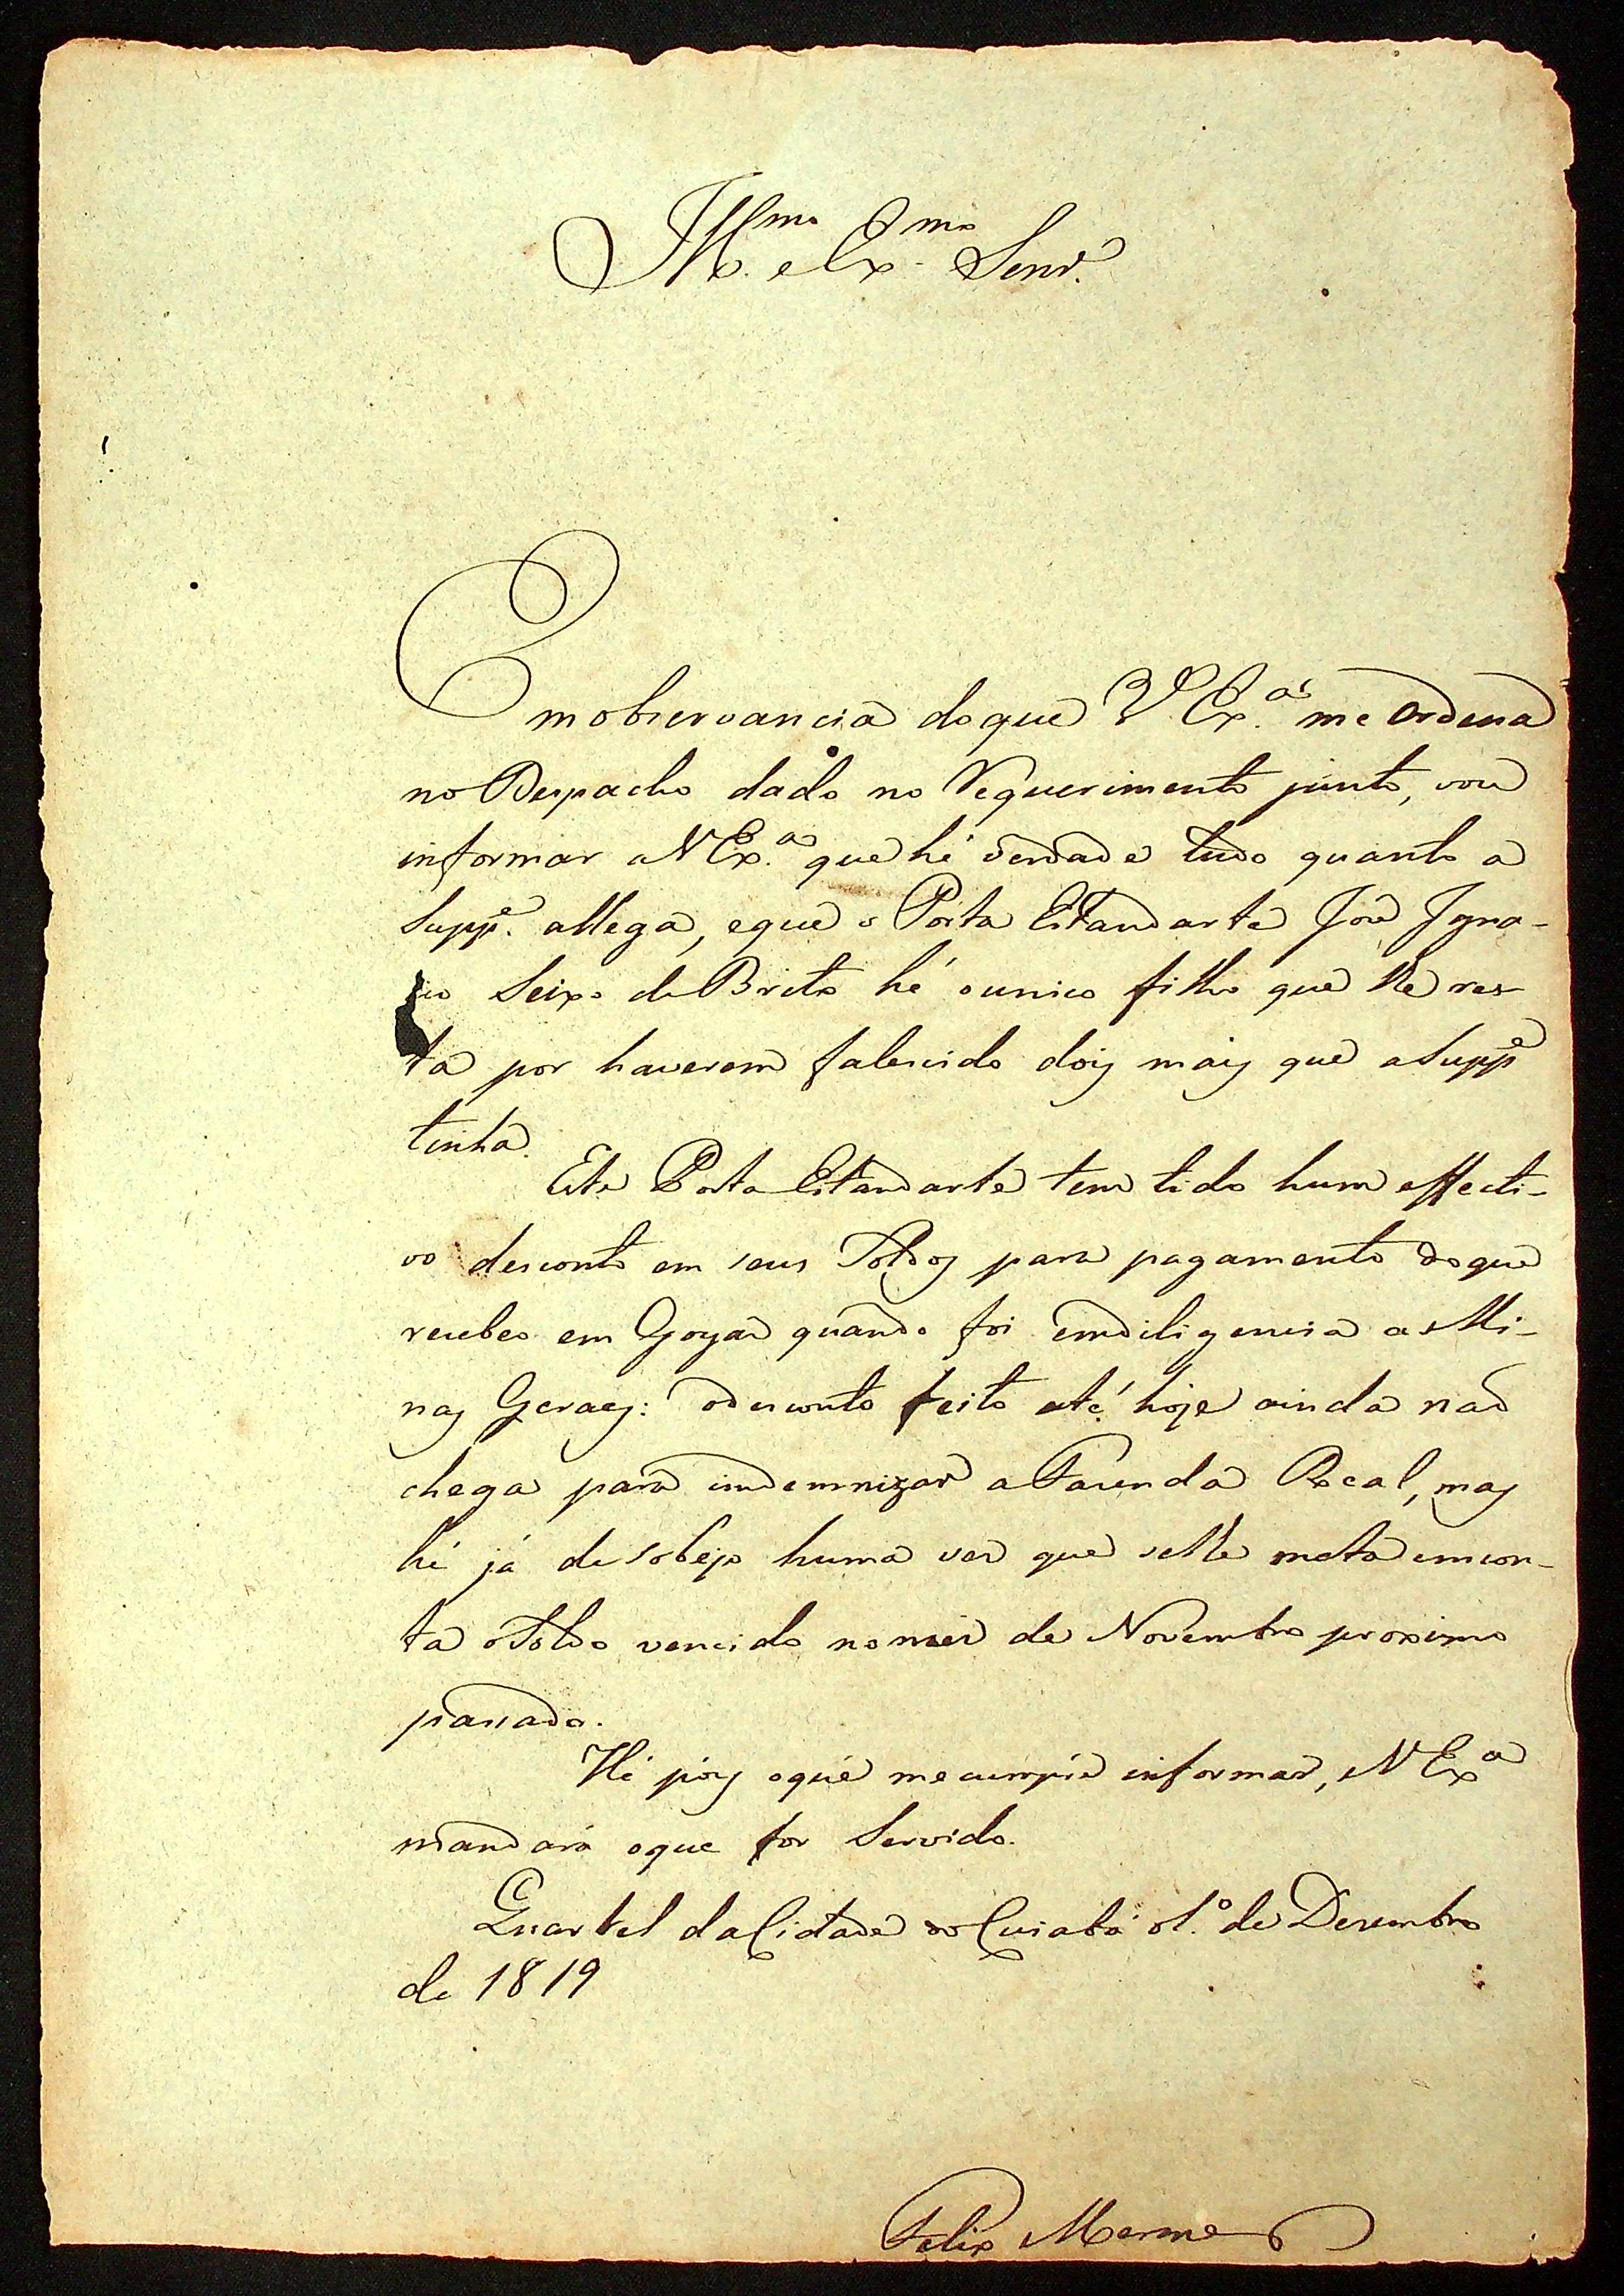 Ill.mo e Ex.mo Senr.
Em observancia do que V. Ex.ª me Ordena
no Despacho dado no Requerimento junto, vou
informar a V Ex.ª que hé verdade tudo quanto a
Supp.e allega, e que o Porta Estandarte Jozé Igna-
cio Seixo de Brito hé o unico filho que lhe res-
ta por haverem falescido dois mais que a Supp.e
tinha.
Este Porta Estandarte tem tido hum effecti-
vo desconto em seus Soldos para pagamento do que
recebeo em Goyaz quando foi em diligencia a Mi-
nas Geraes: o desconto feito até hoje ainda naõ
chega para indemnizar a Fazenda Real, mas
hé já de sobejo huma vez que se lhe meta em con-
ta o Soldo vencido no mez de Novembro proximo
passado.
Hé pois o que me cumpre informar, V Ex.ª
mandará o que for Servido.
Quartel da Cidade do Cuiabá o 1.º de Dezembro
de 1819
Felix Merme